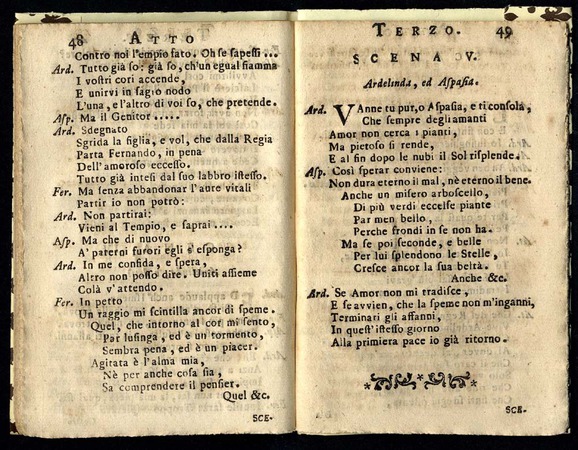 48 ATTO
Contro noi l'empio fato. Oh se sapessi ...
Ard. Tutto già so: già so, ch'un egual fiamma
I vostri cori accende,
E unirvi in sagro nodo
L'una, e l'altro di voi so, che pretende.
Asp. Ma il Genitor .....
Ard. Sdegnato
Sgrida la figlia, e vol, che dalla Regia
Parta Fernando, in pena
Dell'amoroso eccesso.
Tutto già intesi dal suo labbro istesso.
Fer. Ma senza abbandonar l'aure vitali
Partir io non potrò:
Ard. Non partirai:
Vieni al Tempio, e saprai ....
Asp. Ma che di nuovo
A' paterni furori egli s'esponga?
Ard. In me confida, e spera,
Altro non posso dire. Uniti assieme
Colà v'attendo.
Fer. In petto
Un raggio mi scintilla ancor di speme.
Quel, che intorno al cor mi sento,
Par lusinga, ed è un tormento,
Sembra pena, ed è un piacer.
Agitata è l'alma mia,
Nè per anche cosa sia,
Sa comprendere il pensier.
Quel &c.
SCE-
TERZO. 49
SCENA V.
Ardelinda, ed Aspasia.
Ard. VAnne tu pur, o Aspasia, e ti consola,
Che sempre degli amanti
Amor non cerca i pianti,
Ma pietoso si rende,
E al fin dopo le nubi il Sol risplende.
Asp. Così sperar conviene:
Non dura eterno il mal, nè eterno il bene.
Anche un misero arboscello,
Di più verdi eccelse piante
Par men bello,
Perche frondi in se non ha.
Ma se poi seconde, e belle
Per lui splendono le Stelle,
Cresce ancor la sua beltà.
Anche &c.
Ard. Se Amor non mi tradisce,
E se avvien, che la speme non m'inganni,
Terminari gli affanni,
In quest'istesso giorno
Alla primiera pace io già ritorno.
SCE-